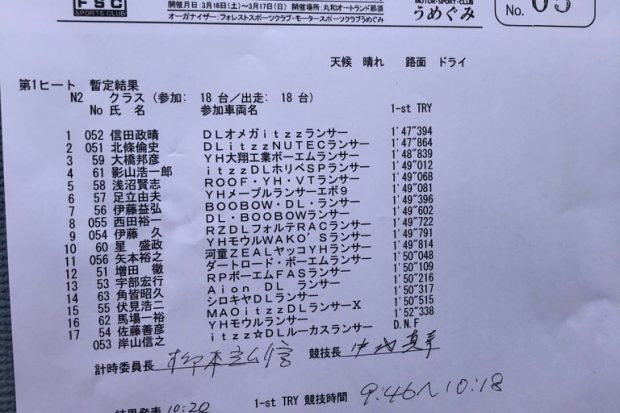 FSC
SPORTS CLUB
開催月日：3月16日(土)～3月17日(日) 開催場所：丸和オートランド那須
オーガナイザー：フォレストスポーツクラブ・モータースポーツクラブうめぐみ
MOTOR-SPORT-CLUB
うめぐみ
No. 05
天候 晴れ 路面 ドライ
第1ヒート 暫定結果
N2 クラス（参加： 18 台/出走： 18 台）
No 氏 名 参加車両名 1-st TRY
1 052 信田政晴 DLオメガitzzランサー 1'47"394
2 051 北條倫史 DLitzzNUTECランサー 1'47"864
3 59 大橋邦彦 YH大翔工業ボーエムランサー 1'48"839
4 61 影山浩一郎 itzzDLホリペSPランサー 1'49"012
5 58 浅沼賢志 ROOF・YH・VTランサー 1'49"068
6 57 足立由夫 YHメープルランサーエボ9 1'49"081
7 56 伊藤益弘 BOOBOW・DL・ランサー 1'49"396
8 055 西田裕一 DL・BOOBOWランサー 1'49"602
9 054 伊藤 久 RZDLフォルテRACランサー 1'49"722
10 60 星 盛政 YHモウルWAKO'Sランサー 1'49"791
11 056 矢本裕之 河童ZEALヤッコYHランサー 1'49"814
12 51 増田 徹 ダートロード・ボーエムランサー 1'50"048
13 53 宇部宏行 RPボーエムFASランサー 1'50"109
14 63 角皆昭久 Aion DL ランサー 1'50"216
15 55 伏見浩二 シロキヤDLランサー 1'50"317
16 62 馬場一裕 MAOitzzDLランサーX 1'50"515
17 54 佐藤善彦 YHモウルランサー 1'52"338
053 岸山信之 itzz☆DLルーカスランサー D.N.F
計時委員長 競技長
結果発表 10:20 1-st TRY 競技時間 9:46～10:18